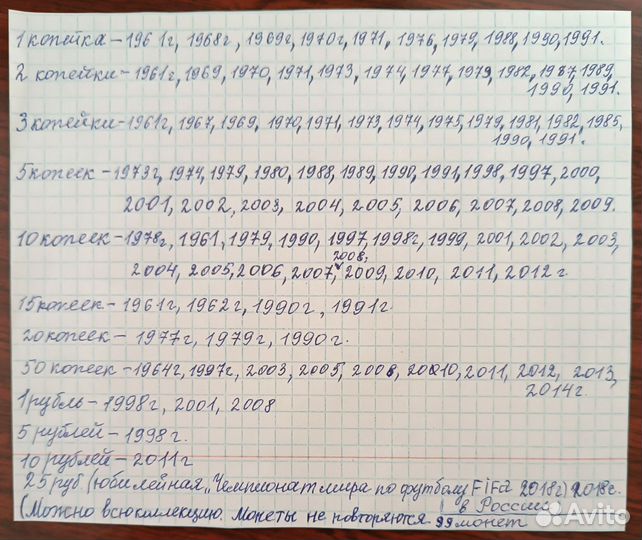 1 копейка – 1961г, 1968г, 1969г, 1970г, 1971, 1976, 1979, 1988, 1990, 1991.
2 копейки – 1961г, 1969, 1970, 1971, 1973, 1974, 1977, 1979, 1982, 1987, 1989,
1990, 1991.
3 копейки – 1961г, 1967, 1969, 1970, 1971, 1973, 1974, 1975, 1979, 1981, 1982, 1985,
1990, 1991.
5 копеек – 1973г, 1974, 1979, 1980, 1988, 1989, 1990, 1991, 1998, 1997, 2000,
2001, 2002, 2003, 2004, 2005, 2006, 2007, 2008, 2009.
10 копеек – 1978г, 1961, 1979, 1990, 1997, 1998г, 1999, 2001, 2002, 2003,
2008,
2004, 2005, 2006, 2007, 2009, 2010, 2011, 2012 г
15 копеек – 1961г, 1962г, 1990г, 1991г
20 копеек – 1977г, 1979г, 1990г.
50 копеек – 1964г, 1997г, 2003, 2005, 2008, 2010, 2011, 2012, 2013,
2014г.
1 рубль – 1998г, 2001, 2008
5 рублей – 1998г.
10 рублей – 2011г
25 руб (юбилейная „Чемпионат мира по футболу FiFa 2018г) 2018г.
в России
(Можно всю коллекцию. Монеты не повторяются 99 монет
Avito